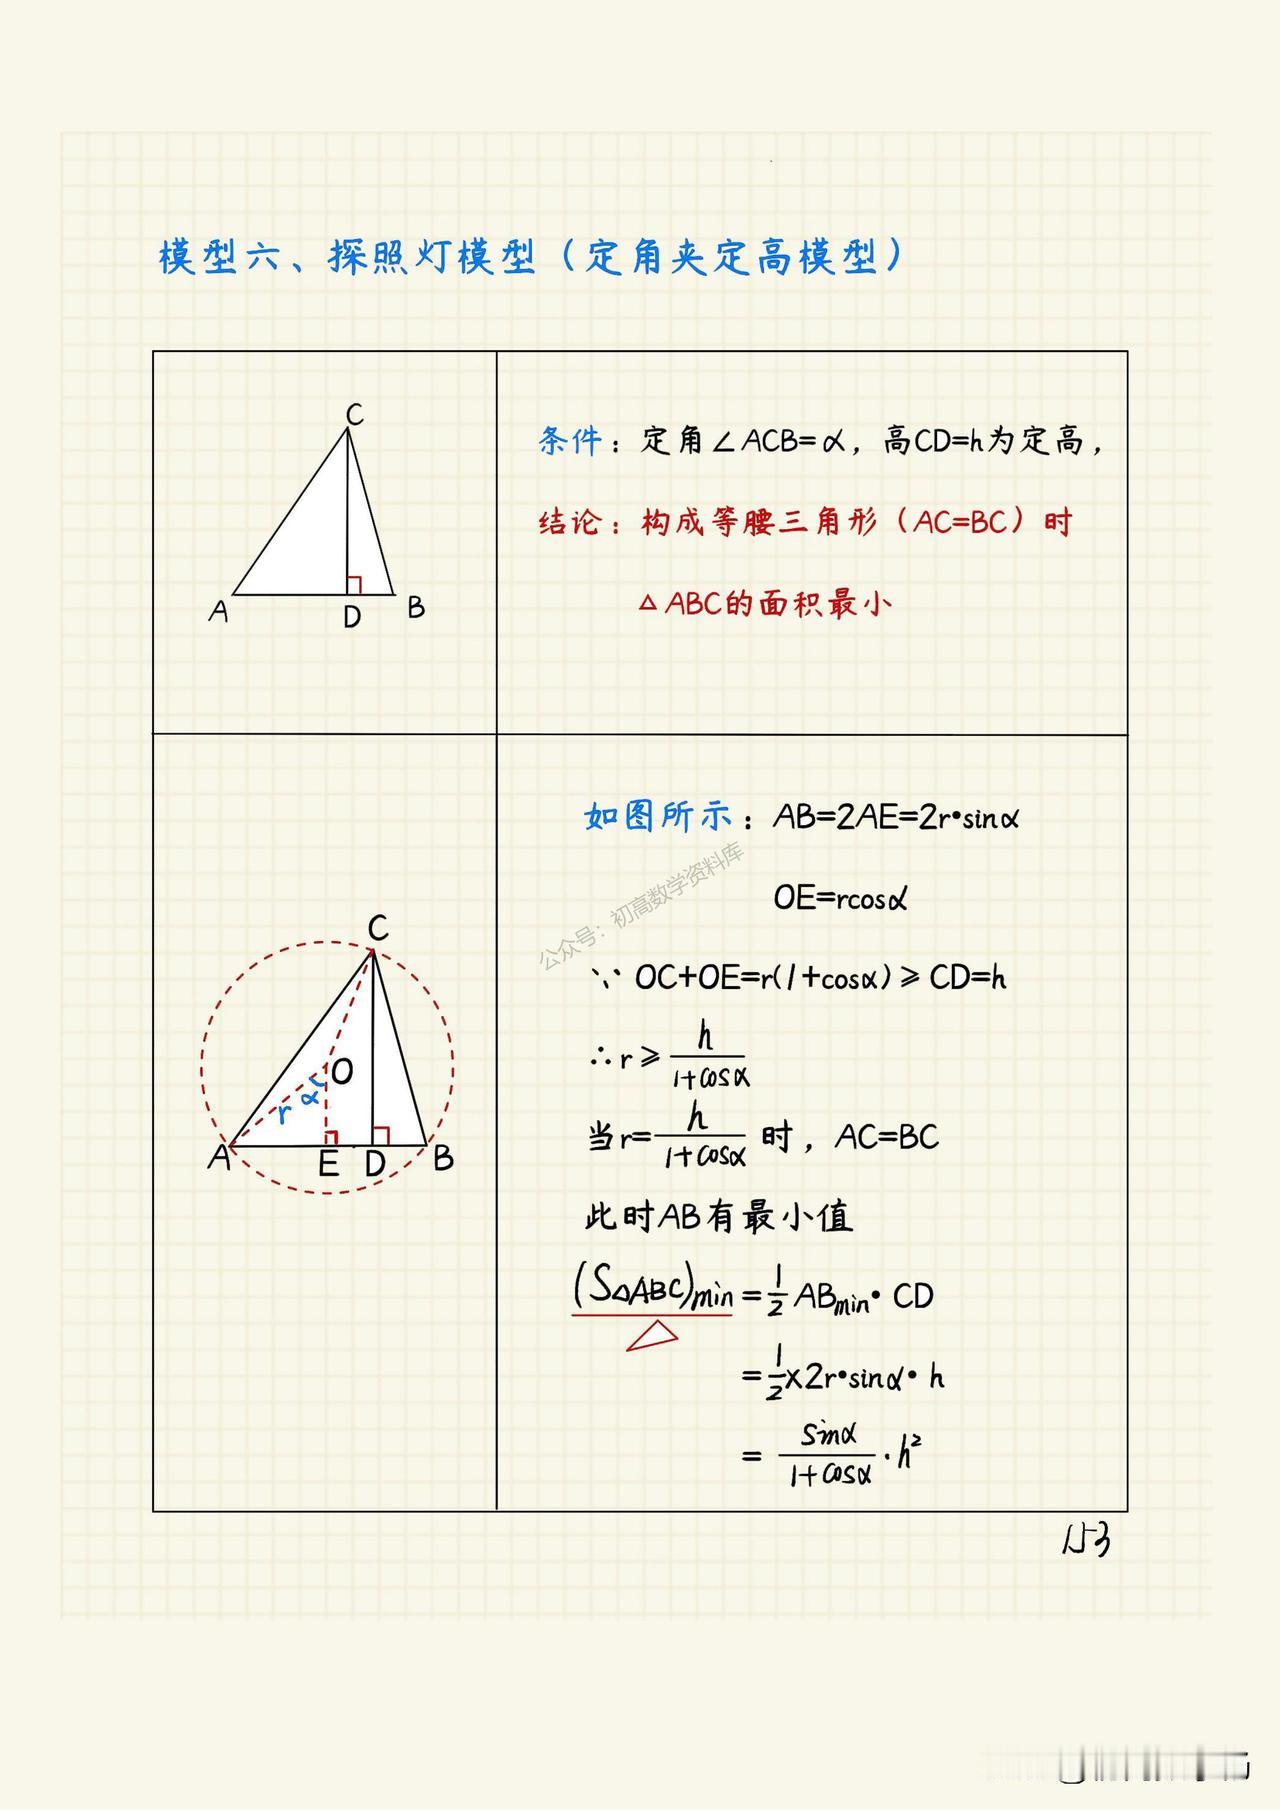 模型六、探照灯模型（定角夹定高模型）
C
A
D
B
条件：定角∠ACB=α，高CD=h为定高，
结论：构成等腰三角形（AC=BC）时
△ABC的面积最小
如图所示：AB=2AE=2r•sinα
OE=rcosα
公众号：初高数学资料库
∵ OC+OE=r(1+cosα)≥CD=h
∴r≥h/(1+cosα)
当r=h/(1+cosα)时，AC=BC
此时AB有最小值
(S△ABC)min=1/2 ABmin•CD
=1/2×2r•sinα•h
=sinα/(1+cosα)·h²
C
O
α
r
A
E
D
B
153